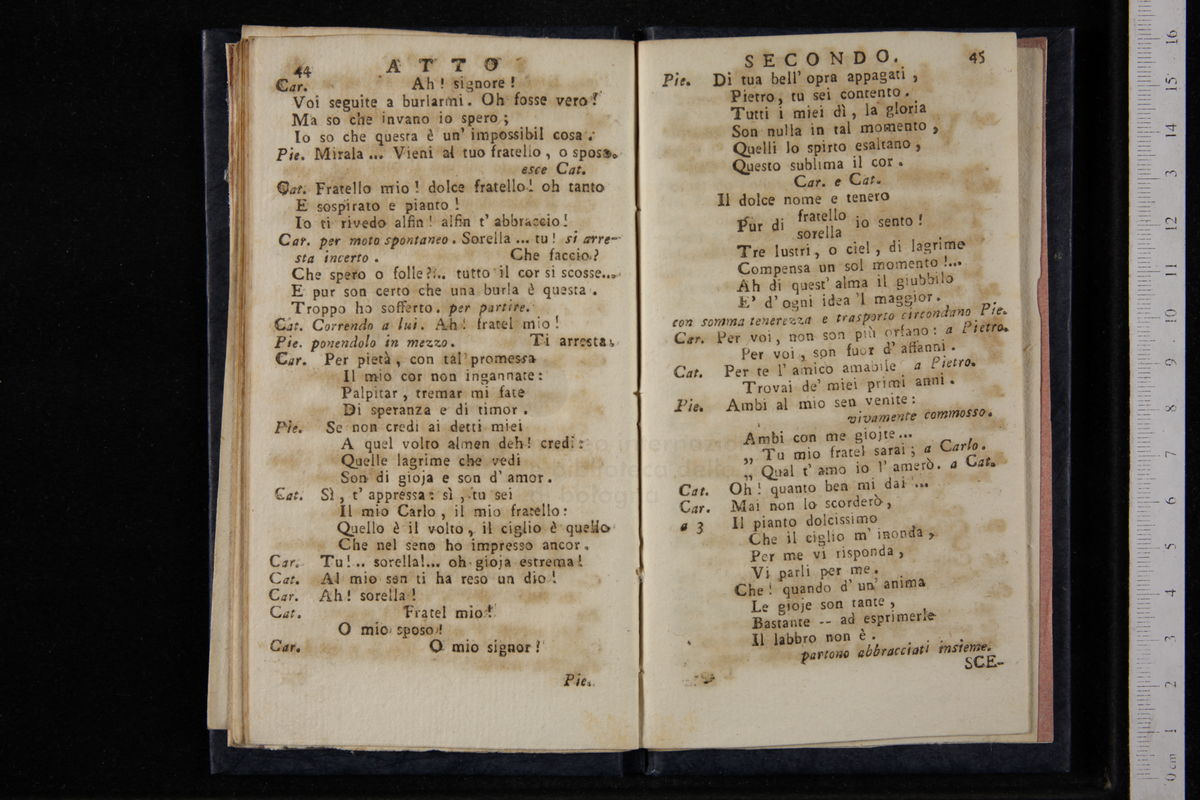 44 ATTO
Car. Ah! signore!
Voi seguite a burlarmi. Oh fosse vero!
Ma so che invano io spero;
Io so che questa è un' impossibil cosa.
Pie. Mirala... Vieni al tuo fratello, o sposa.
esce Cat.
Cat. Fratello mio! dolce fratello! oh tanto
E sospirato e pianto!
Io ti rivedo alfin! alfin t' abbraccio!
Car. per moto spontaneo. Sorella ... tu! si arre-
sta incerto. Che faccio?
Che spero o folle?... tutto il cor si scosse...
E pur son certo che una burla è questa.
Troppo ho sofferto. per partire.
Cat. Correndo a lui. Ah! fratel mio!
Pie. ponendolo in mezzo. Ti arresta.
Car. Per pietà, con tal promessa
Il mio cor non ingannate:
Palpitar, tremar mi fate
Di speranza e di timor.
Pie. Se non credi ai detti miei
A quel volto almen deh! credi:
Quelle lagrime che vedi
Son di gioja e son d' amor.
Cat. Sì, t' appressa: sì, tu sei
Il mio Carlo, il mio fratello:
Quello è il volto, il ciglio è quello
Che nel seno ho impresso ancor.
Car. Tu!.. sorella!... oh gioja estrema!
Cat. Al mio sen ti ha reso un dio!
Car. Ah! sorella!
Cat. Fratel mio!
O mio sposo!
Car. O mio signor!
Pie.
SECONDO. 45
Pie. Di tua bell' opra appagati,
Pietro, tu sei contento.
Tutti i miei dì, la gloria
Son nulla in tal momento,
Quelli lo spirto esaltano,
Questo sublima il cor.
Car. e Cat.
Il dolce nome e tenero
fratello
Pur di io sento!
sorella
Tre lustri, o ciel, di lagrime
Compensa un sol momento!...
Ah di quest' alma il giubbilo
E' d' ogni idea 'l maggior.
con somma tenerezza e trasporto circondano Pie.
Car. Per voi, non son più orfano: a Pietro.
Per voi, son fuor d' affanni.
Cat. Per te l' amico amabile a Pietro.
Trovai de' miei primi anni.
Pie. Ambi al mio sen venite:
vivamente commosso.
Ambi con me giojte...
„ Tu mio fratel sarai; a Carlo.
„ Qual t' amo io l' amerò. a Cat.
Cat. Oh! quanto ben mi dai ...
Car. Mai non lo scorderò,
a 3 Il pianto dolcissimo
Che il ciglio m' inonda,
Per me vi risponda,
Vi parli per me.
Che! quando d' un' anima
Le gioje son tante,
Bastante -- ad esprimerle
Il labbro non è.
partono abbracciati insieme.
SCE-